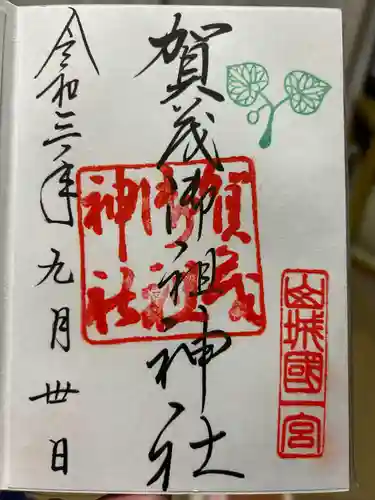 山城國一宮
賀茂御祖神社
賀茂御祖神社
令和三年九月卅日